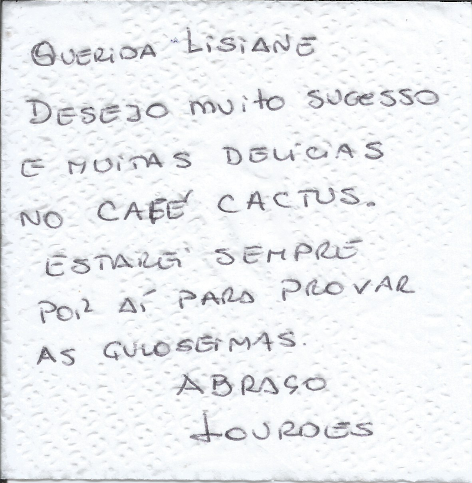 QUERIDA LISIANE
DESEJO MUITO SUCESSO
E MUITAS DELÍCIAS
NO CAFÉ CACTUS.
ESTAREI SEMPRE
POR AÍ PARA PROVAR
AS GULOSEIMAS.
ABRAÇO
LOURDES